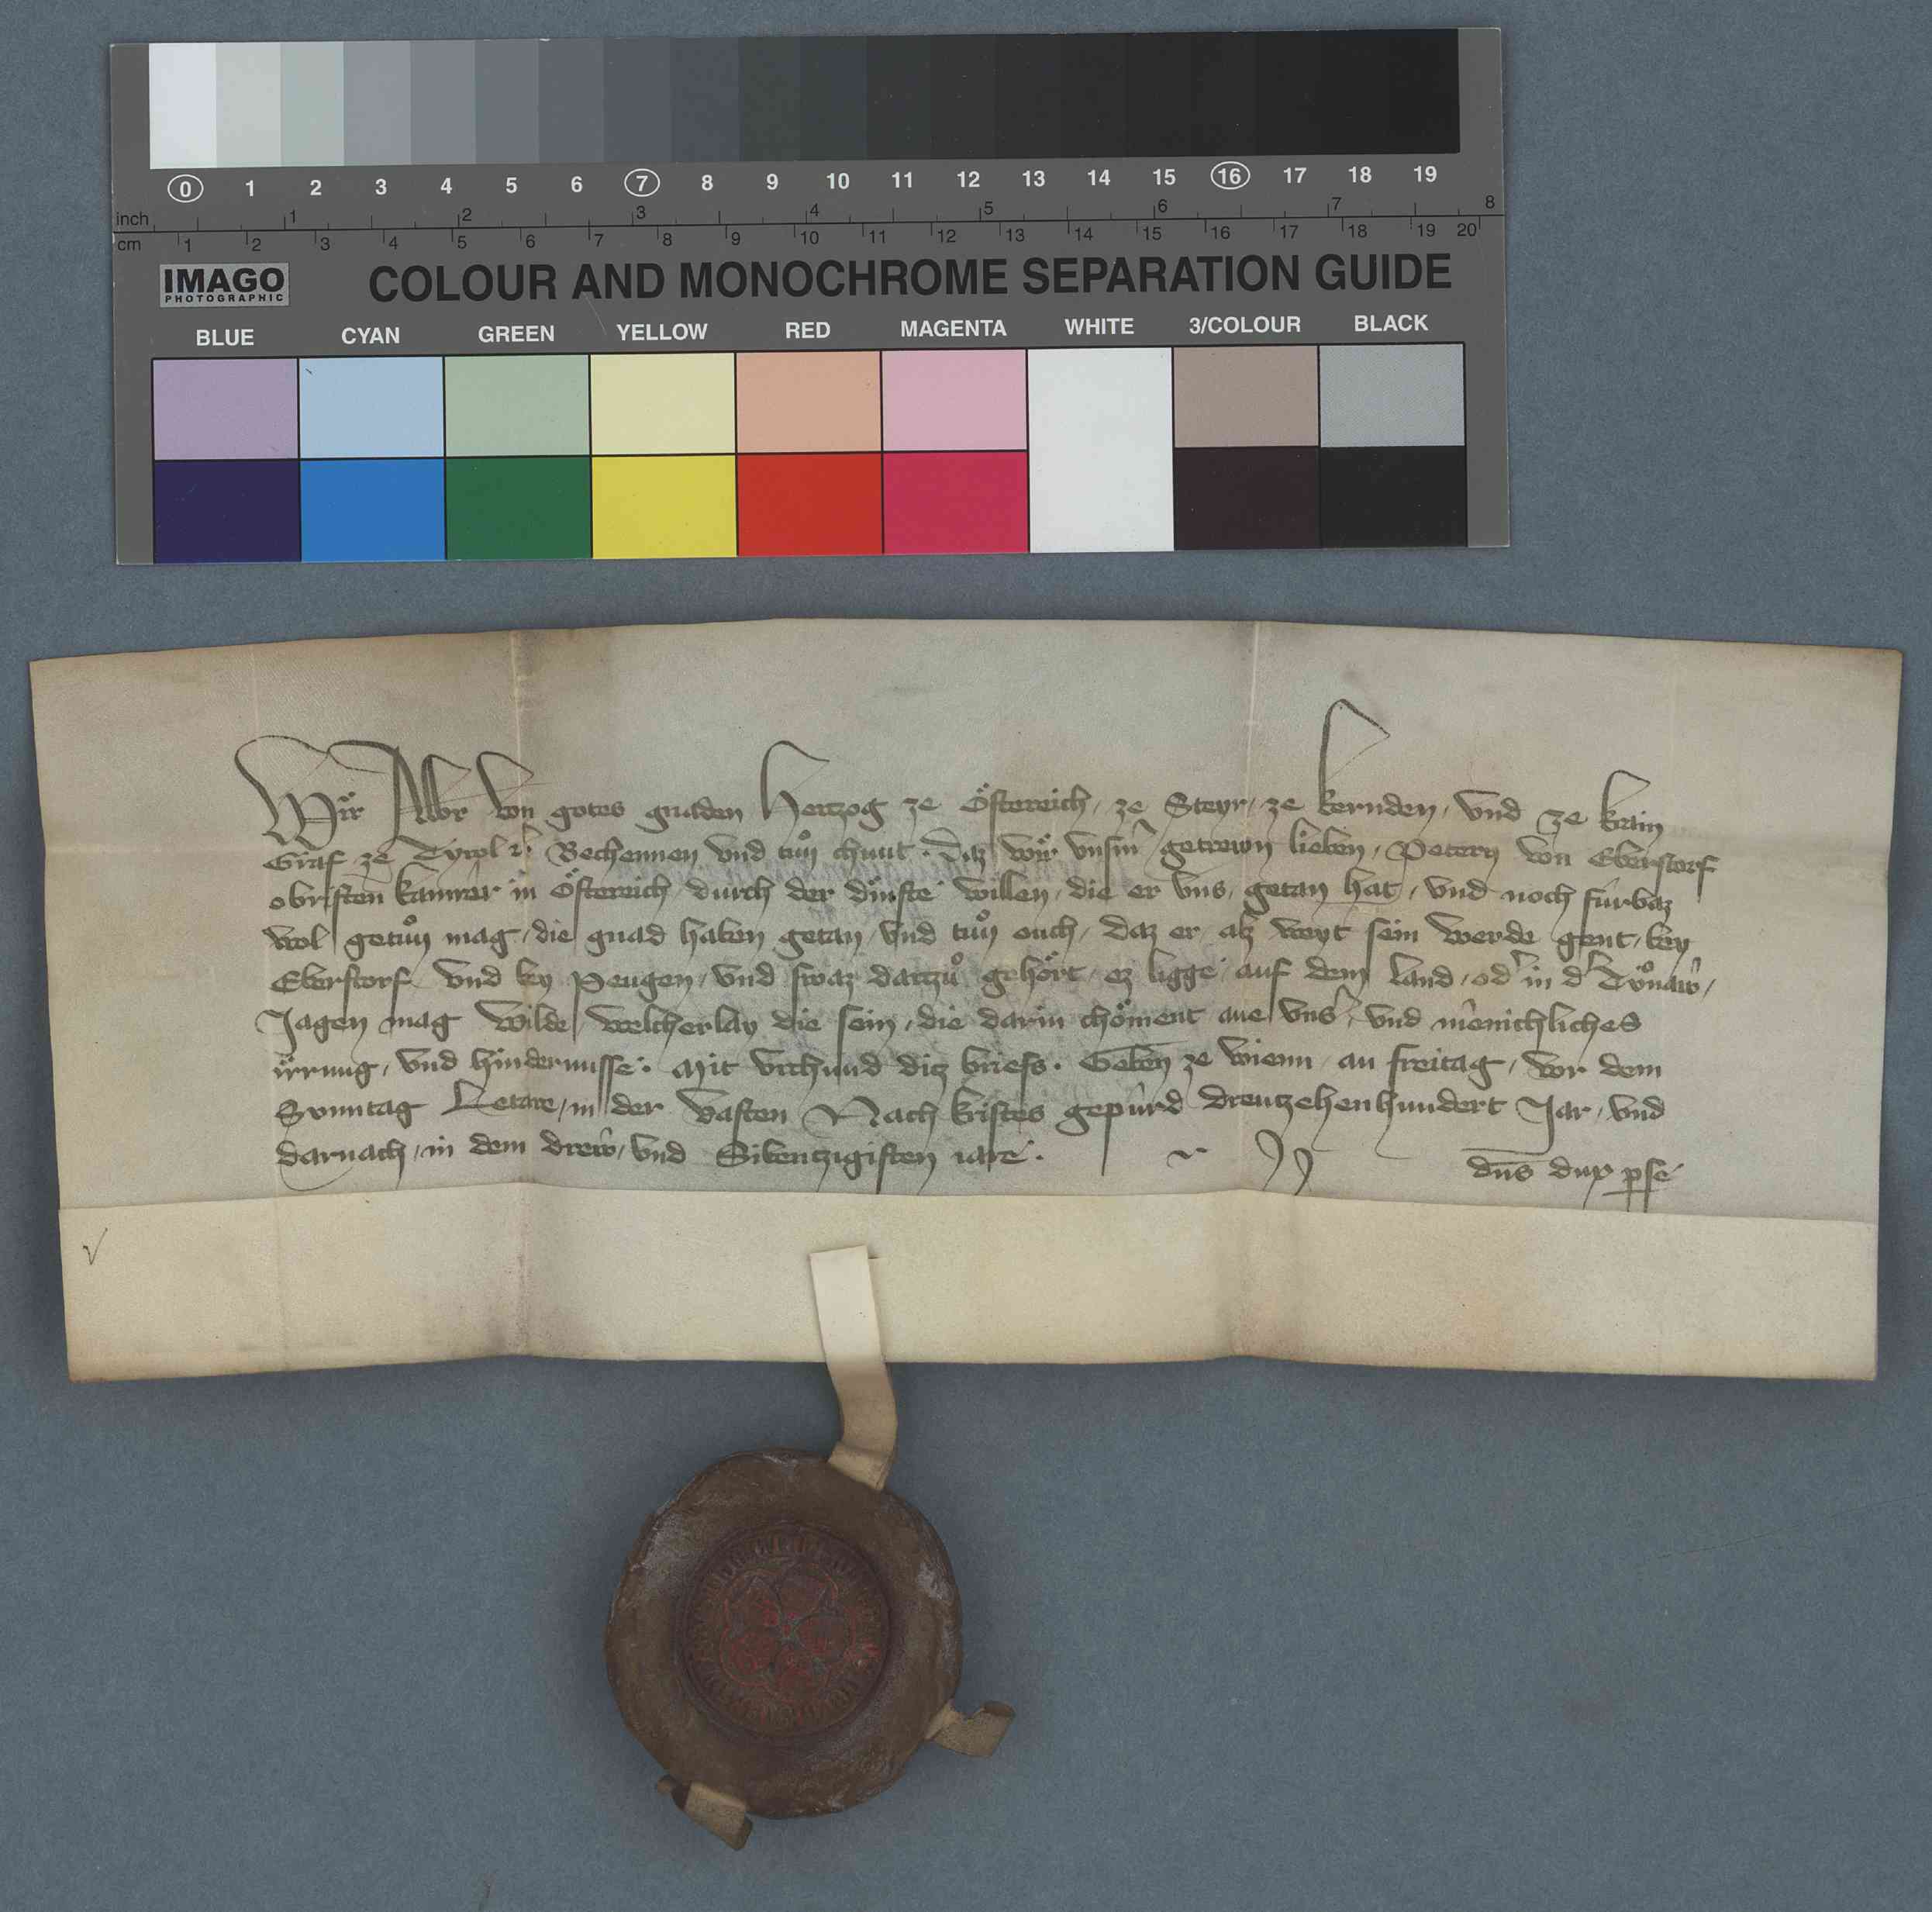 0 1 2 3 4 5 6 7 8 9 10 11 12 13 14 15 16 17 18 19
inch 1 2 3 4 5 6 7 8
cm 1 2 3 4 5 6 7 8 9 10 11 12 13 14 15 16 17 18 19 20
IMAGO
PHOTOGRAPHIC
COLOUR AND MONOCHROME SEPARATION GUIDE
BLUE CYAN GREEN YELLOW RED MAGENTA WHITE 3/COLOUR BLACK
Wir Albr von gotes gnaden Hertzog ze Österreich, ze Steyr, ze kernden, vnd ze krain
Graf ze Tyrol ꝛc. Bechennen vnd tuͦn chunt. Daz wir vnserm getrewn lieben, Petern von Eberstorf
obristen kamrer in Österreich durch der dinste willen, die er vns, getan hat, vnd noch fürbaz
wol getuͦn mag, die gnad haben getan, vnd tuͦn ouch, daz er, alz weyt sein werde gent, bey
Eberstorf, vnd bey Peugen, vnd swaz dartzuͦ gehört, ez ligge auf dem land, od' in d' Tuͦnaw,
Jagen mag Wilde, welcherlay die sein, die darin chöment ane vns', vnd menichliches
irrung, vnd hindernusse. Mit vrchund ditz briefs. Geben ze wienn, an freitag, vor dem
Sunntag Letare, in der vasten Nach kristes gepurd dreutzehenhundert Jar, vnd
darnach, in dem drew, vnd Sibentzigisten iare.
dns dux p se